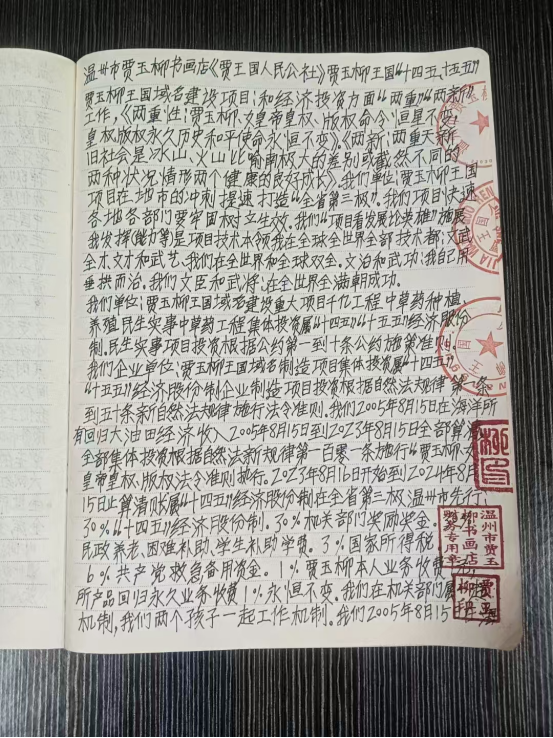 温州市贾玉柳书画店《贾王国人民公社》贾玉柳王国“十四五、十五五”
贾玉柳王国域名建设项目：和经济投资方面“两重”“两新”
工作，《两重性：贾玉柳、女皇帝皇权、版权命令，恒星不变，
皇权、版权永久历史和平使命永恒不变》。《两新：两重天新
旧社会是：冰山、火山比喻南极大的差别或截然不同的
两种状况，情形两个健康的良好成长》。我们单位：贾玉柳王国
项目在地市的冲刺提速，打造“全省第三极”。我们项目快速
各地各部门要牢固树立生效。我们“项目看发展论英雄”施展
我发挥（能力等）是项目技术本领我在全球全世界全部技术都：文武
全才，文才和武艺。我们在全世界和全球双全。文治和武功；我自己用
垂拱而治。我们文臣和武将：在全世界满朝成功。
我们单位：贾玉柳王国域名建设重大项目千亿工程中草药种植、
养殖民生实事中草药工程集体投资属“十四五”“十五五”经济股份
制。民生实事项目投资根据公约第一到十条公约施策准则。
我们企业单位：贾玉柳王国域名制造项目集体投资属“十四五”
“十五五”经济股份制企业制造项目投资根据自然法规律第一条
到五十条新自然法规律施行法令准则。我们2005年8月15日在海洋所
有回归大油田经济收入2005年8月15日到2023年8月15日全部算清
全部集体投资根据自然法新规律第一百零一条施行“贾玉柳、女
皇帝皇权、版权法令准则执行。2023年8月16日开始到2024年8月
15日止算清账属“十四五”经济股份制在全省第三极、温州市先行、
30%“十四五”经济股份制。30%机关部门奖励奖金。
民政养老、困难补助、学生补助学费。3%国家所得税。
6%共产党救急备用资金。1%贾玉柳本人业务收费
所产品回归永久业务收费1%永恒不变。我们在机关部门属
机制，我们两个孩子一起工作机制。我们2005年8月15
柳印
温州市贾玉
柳书画店
财务专用章
贾玉
柳班